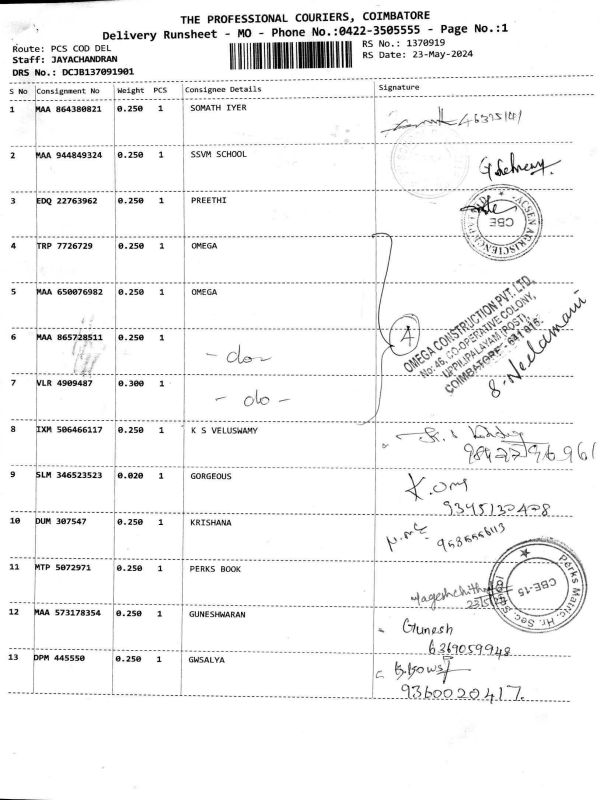 THE PROFESSIONAL COURIERS, COIMBATORE
Delivery Runsheet - MO - Phone No.:0422-3505555 - Page No.:1
Route: PCS COD DEL
RS No.: 1370919
Staff: JAYACHANDRAN
RS Date: 23-May-2024
DRS No.: DCJB137091901
S No Consignment No Weight PCS Consignee Details Signature
1 MAA 864380821 0.250 1 SOMATH IYER
2 MAA 944849324 0.250 1 SSVM SCHOOL
3 EDQ 22763962 0.250 1 PREETHI
ACSEN AGRISCIENCE
CBE
4 TRP 7726729 0.250 1 OMEGA
5 MAA 650076982 0.250 1 OMEGA
4
OMEGA CONSTRUCTION PVT. LTD.
No: 46, CO-OPERATIVE COLONY,
UPPILIPALAYAM (POST),
COIMBATORE - 641 015.
S. Neelamani
6 MAA 865728511 0.250 1 - do -
7 VLR 4909487 0.300 1 - do -
8 IXM 506466117 0.250 1 K S VELUSWAMY
9 SLM 346523523 0.020 1 GORGEOUS
9345132478
10 DUM 307547 0.250 1 KRISHANA
11 MTP 5072971 0.250 1 PERKS BOOK
Perks Matric. Hr. Sec.
CBE-15
12 MAA 573178354 0.250 1 GUNESHWARAN
Gunesh
6369059948
13 DPM 445550 0.250 1 GWSALYA
9360020417.